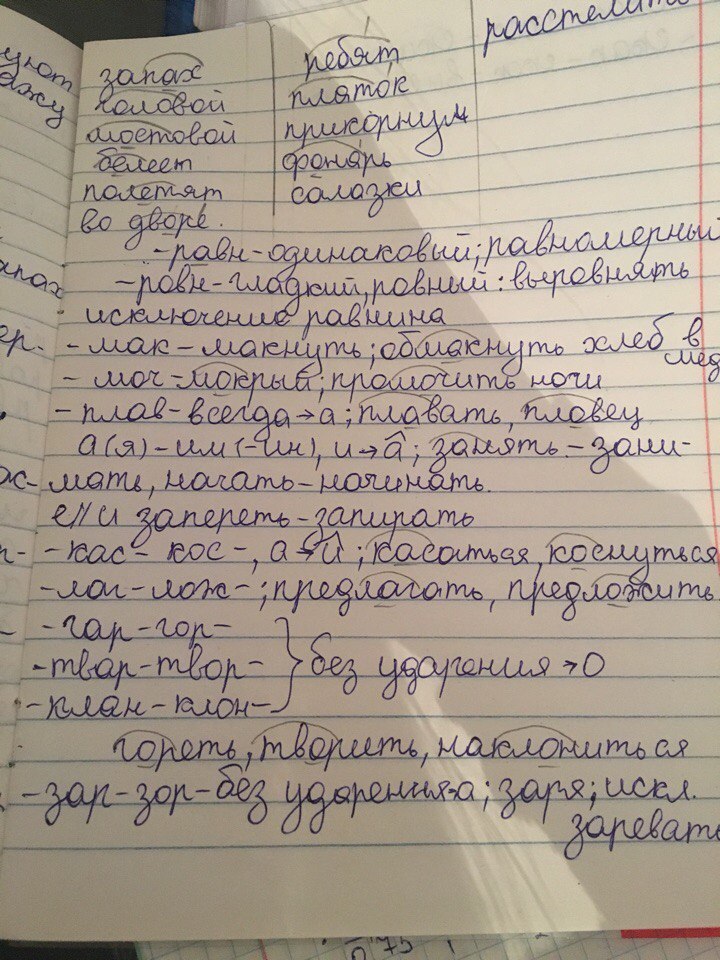 расстелить
запах ребят
половой платок
мостовой прикорнум
белеет фонарь
полетят салазки
во дворе.
-равн-одинаковый; равномерный
-ровн-гладкий, ровный: выровнять
исключение равнина
-мак-макнуть; обмакнуть хлеб в мёд
-моч-мокрый; промочить ночи
-плав-всегда→а; плавать, пловец
а(я)-им(-ин), и→а; занять-зани-
мать, начать-начинать.
е//и запереть-запирать
-кас-кос-, а→а; касаться, коснуться
-лаг-лож-; предлагать, предложить
-гар-гор-
-твар-твор- } без ударения→о
-клан-клон-
гореть, творить, наклониться
-зар-зор-без ударения-а; заря; искл.
заревать